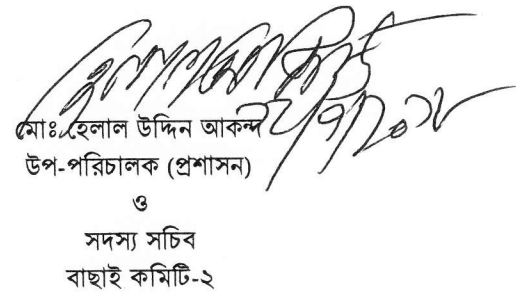 মোঃ হেলাল উদ্দিন আকন্দ
উপ-পরিচালক (প্রশাসন)
ও
সদস্য সচিব
বাছাই কমিটি-২